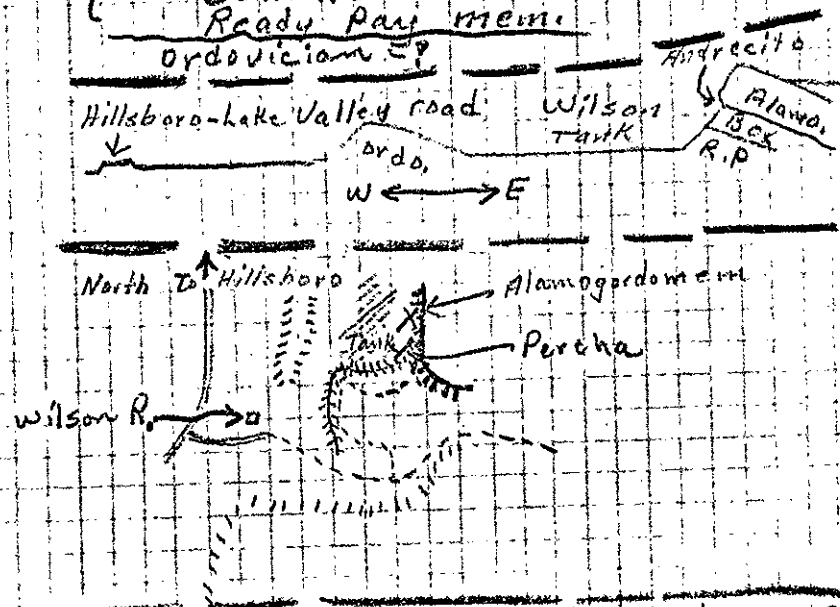 Ready Pay mem.
Ordovician
Andrecito
Hillsboro-Lake Valley road
Wilson Tank
Alamo.
Box
R.P
Ordo.
W E
North To Hillsboro
Alamogordo mem
Tank
Percha
Wilson R.